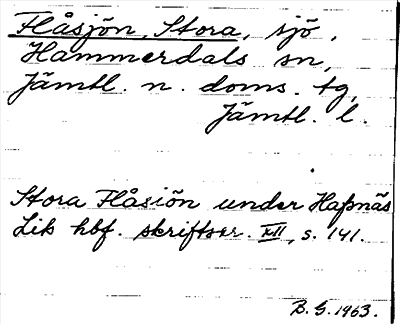 Flåsjön, Stora, sjö,
Hammerdals sn,
Jämtl. n. doms. tg,
Jämtl. l.
Stora Flåsiön under Hafnäs
Lik hbf. skriftser. XII, s. 141.
B. G. 1963.